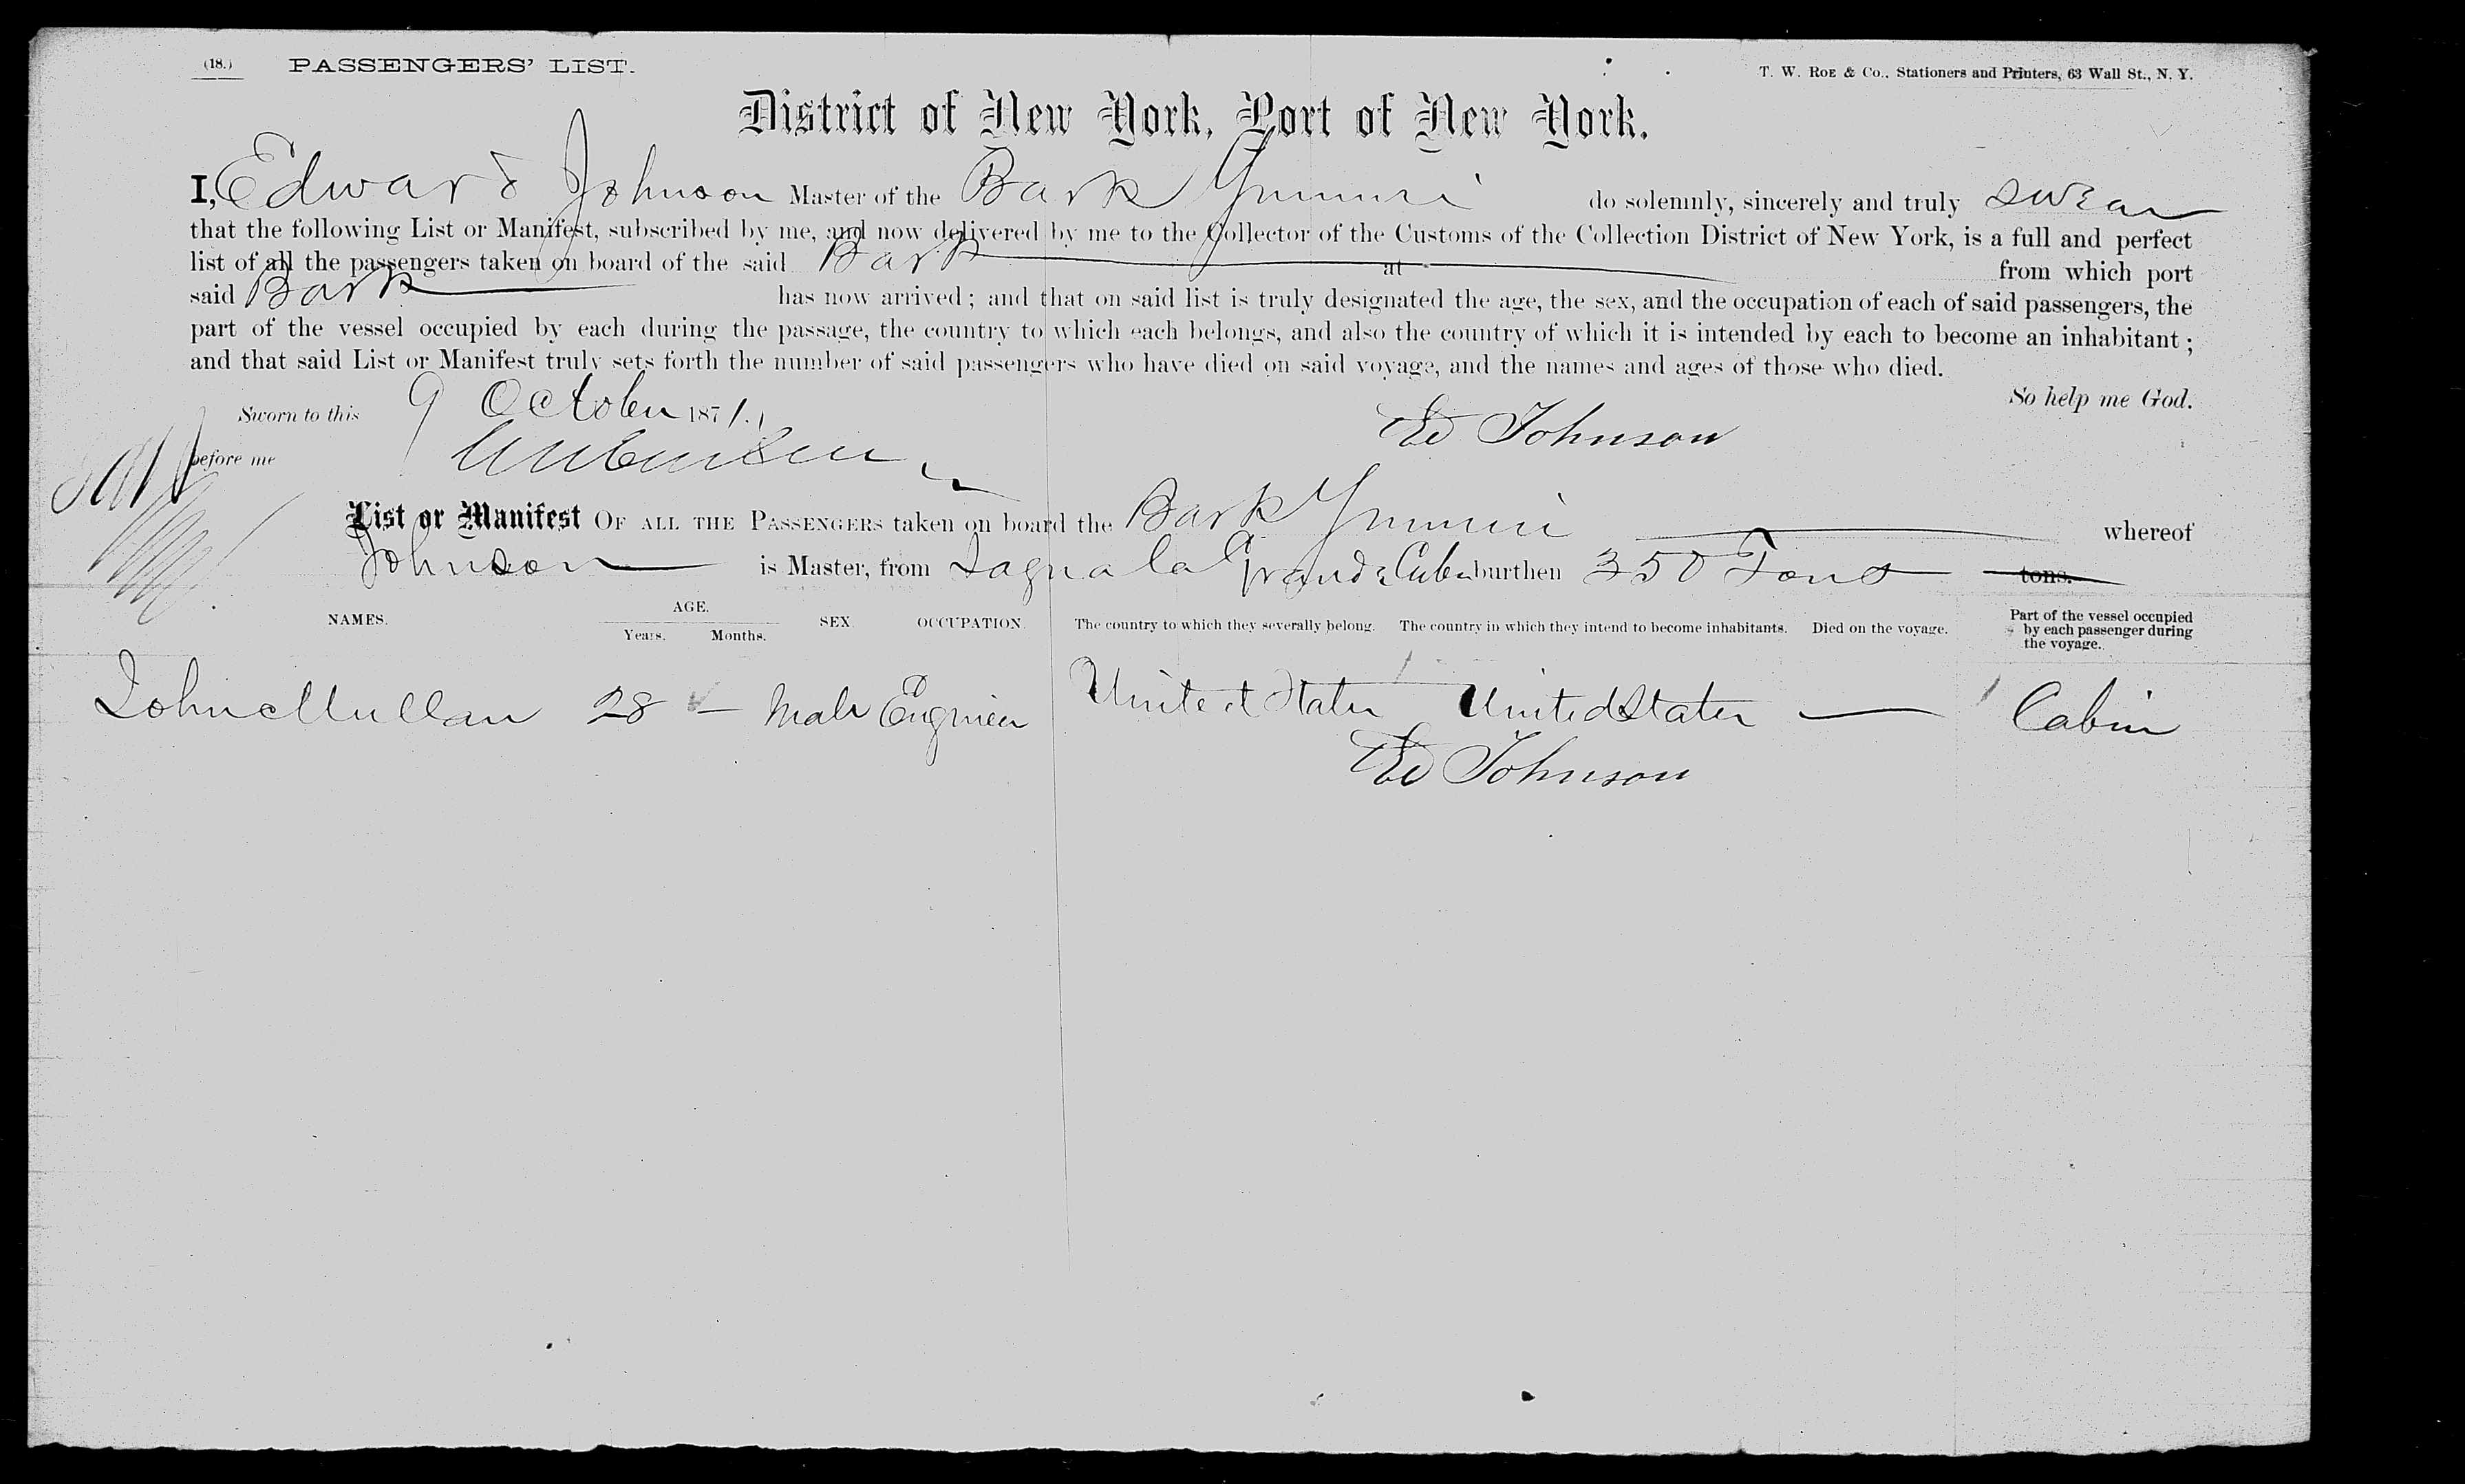 (18.) PASSENGERS' LIST. T. W. ROE & Co., Stationers and Printers, 63 Wall St., N. Y.
District of New York, Port of New York.
I, Edward Johnson Master of the Bark Yumuri do solemnly, sincerely and truly swear
that the following List or Manifest, subscribed by me, and now delivered by me to the Collector of the Customs of the Collection District of New York, is a full and perfect
list of all the passengers taken on board of the said Bark at from which port
said Bark has now arrived; and that on said list is truly designated the age, the sex, and the occupation of each of said passengers, the
part of the vessel occupied by each during the passage, the country to which each belongs, and also the country of which it is intended by each to become an inhabitant;
and that said List or Manifest truly sets forth the number of said passengers who have died on said voyage, and the names and ages of those who died.
So help me God.
Sworn to this 9 October 1871.
Ed Johnson
before me
List or Manifest OF ALL THE PASSENGERS taken on board the Bark Yumuri whereof
Johnson is Master, from Sagua la Grande Cuba burthen 350 Tons tons.
NAMES. AGE. Years. Months. SEX. OCCUPATION. The country to which they severally belong. The country in which they intend to become inhabitants. Died on the voyage. Part of the vessel occupied by each passenger during the voyage.
John Mullan 28 — Male Engineer United States United States — Cabin
Ed Johnson